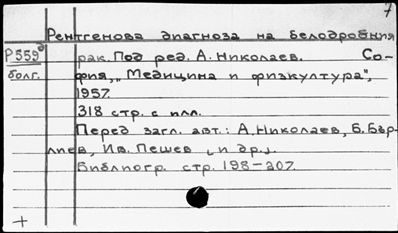 7
Рентгенова диагноза на белодробния
Р559
рак. Под ред. А. Николаев. Со-
болг.
фия, „Медицина и физкултура",
1957.
318 стр. с илл.
Перед загл. авт.: А. Николаев, Б. Бър-
лиев, Ив. Пешев [и др.].
Библиогр. стр. 198-207.
+